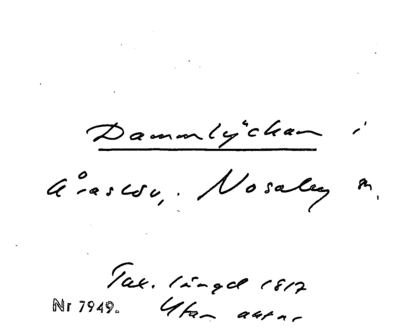 Dammlyckan i
Åraslöv, Nosaby sn.
Tax. längd 1817
Nr 7949. Utan antal